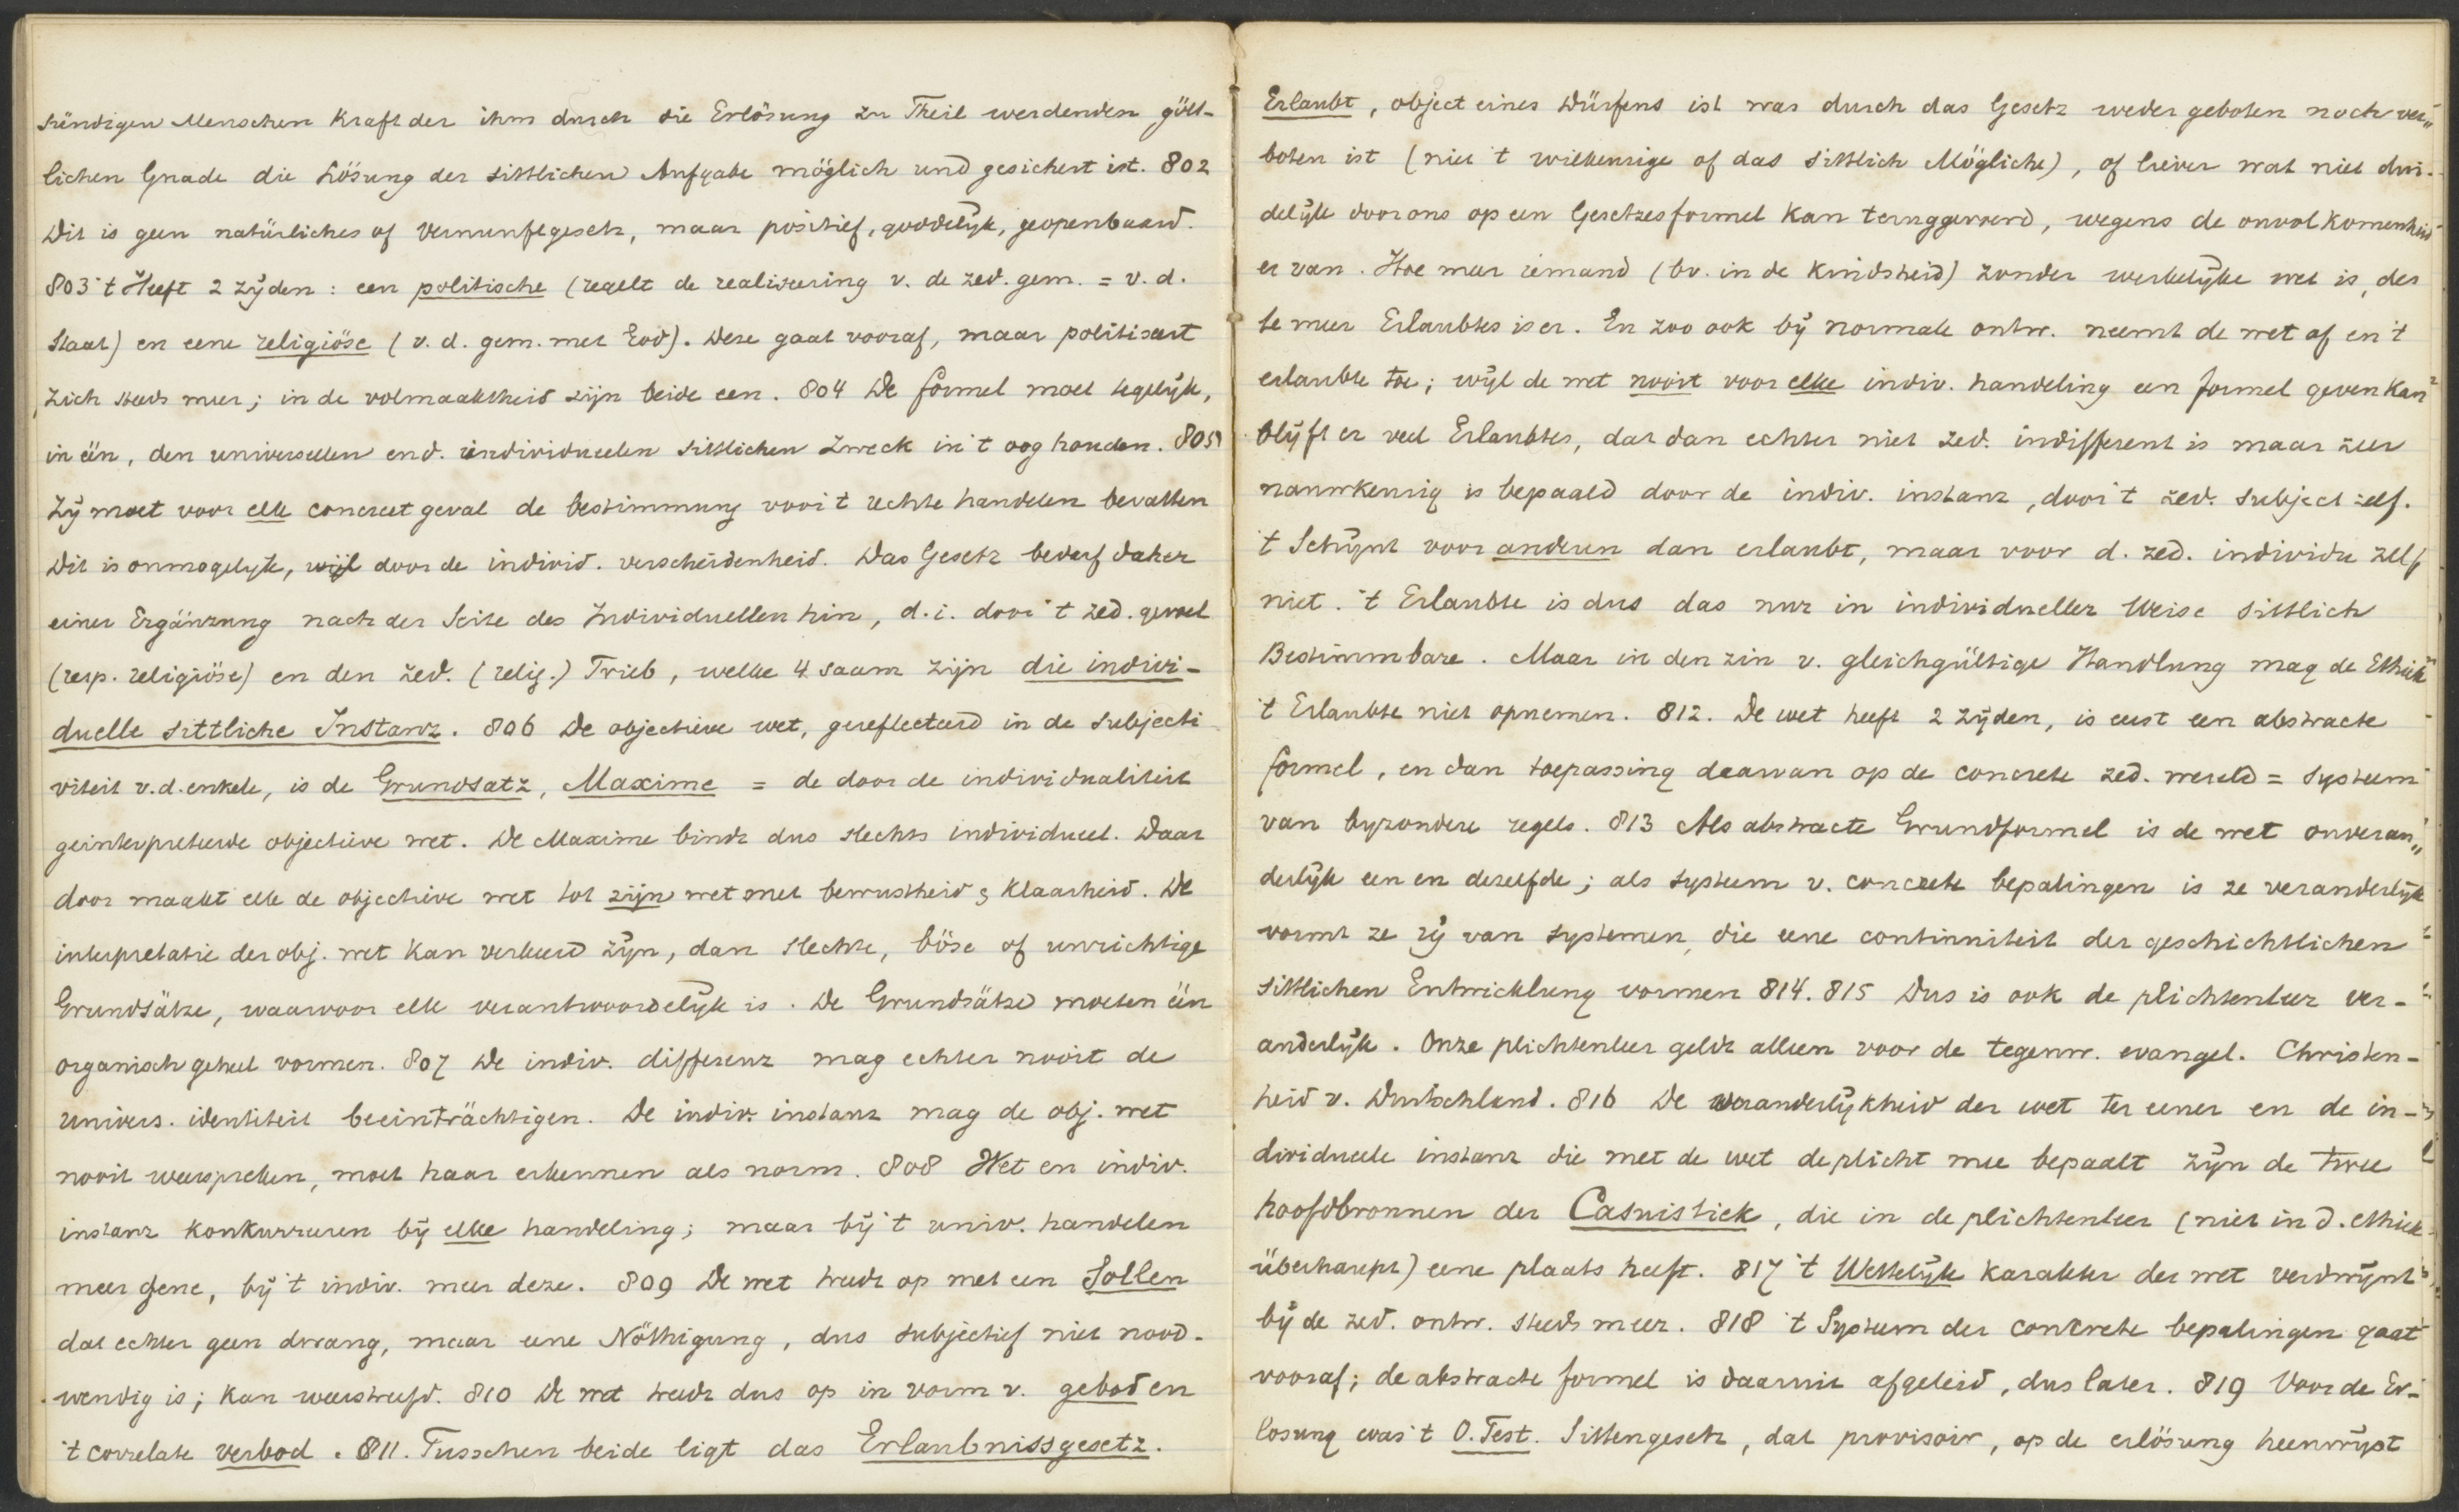 sündigen Menschen Kraft der ihm durch die Erlösung zu Theil werdenden gött-
lichen Gnade die Lösung der sittlichen Aufgabe möglich und gesichert ist. 802
Dit is geen natürliches of Vernunftgesetz, maar positief, goddelijk, geopenbaard.
803 't Heeft 2 zijden: een politische (regelt de realiseering v. de zed. gem. = v. d.
Staat) en eene religiöse (v. d. gem. met God). Deze gaat vooraf, maar politiseert
zich steeds meer; in de volmaaktheid zijn beide een. 804 De formel moet tegelijk,
in één, den universeelen en d. individueelen sittlichen Zweck in 't oog houden. 805
Zij moet voor elk concreet geval de bestimmung voor 't rechte handelen bevatten
Dit is onmogelijk, wijl door de individ. verscheidenheid. Das Gesetz bederf daher
einer Ergänzung nach der Seite des Individuellen hin, d.i. door 't zed. gevoel
(resp. religiöse) en den zed. (relig.) Trieb, welke 4 saam zijn die indivi-
duelle sittliche Instanz. 806 De objectieve wet, gereflecteerd in de subjecti
viteit v.d. enkele, is de Grundsatz, Maxime = de door de individualiteit
geinterpreteerde objectieve wet. De Maxime bindt dus slechts individueel. Daar
door maakt elk de objectieve wet tot zijn wet met bewustheid & klaarheid. De
interpretatie der obj. wet kan verkeerd zijn, dan slechte, böse of unrichtige
Grundsätze, waarvoor elk verantwoordelijk is. De Grundsätze moeten één
organisch geheel vormen. 807 De indiv. differenz mag echter nooit de
univers. identiteit beeinträchtigen. De indiv. instanz mag de obj. wet
nooit weerspreken, moet haar erkennen als norm. 808 Wet en indiv.
instanz konkurreren bij elke handeling; maar bij 't univ. handelen
meer gene, bij 't indiv. meer deze. 809 De wet treedt op met een Sollen
dat echter geen dwang, maar eene Nöthigung, dus subjectief niet nood-
wendig is; kan weerstreefd. 810 De wet treedt dus op in vorm v. gebod en
't correlate verbod. 811. Tusschen beide ligt das Erlaubnissgesetz.
Erlaubt, object eines Dürfens ist was durch das Gesetz weder geboten noch ver„
boten ist (niet 't willekeurige of das sittlich Mögliche), of liever wat niet dui-
delijk door ons op een Gesetzesformel kan teruggevoerd, wegens de onvolkomenheid
er van. Hoe meer iemand (bv. in de kindsheid) zonder werkelijke wet is, des
te meer Erlaubtes is er. En zoo ook bij normale ontw. neemt de wet af en 't
erlaubte toe; wijl de wet nooit voor elke indiv. handeling een formel geven kan
blijft er veel Erlaubtes, dat dan echter niet zed. indifferent is maar zeer
nauwkeurig is bepaald door de indiv. instanz, door 't zed. subject zelf.
't Schijnt voor anderen dan erlaubt, maar voor d. zed. individu zelf
niet. 't Erlaubte is dus das nur in individueller Weise sittlich
Bestimmbare. Maar in den zin v. gleichgültige Handlung mag de Ethiek
't Erlaubte niet opnemen. 812. De wet heeft 2 zijden, is eerst een abstracte
formel, en dan toepassing daarvan op de concrete zed. wereld = systeem
van byzondere regels. 813 Als abstracte Grundformel is de wet onveran„
derlijk een en dezelfde; als systeem v. concrete bepalingen is ze veranderlijk
vormt ze rij van systemen, die eene continuiteit der geschichtlichen
sittlichen Entwicklung vormen 814. 815 Dus is ook de plichtenleer ver-
anderlijk. Onze plichtenleer geldt alleen voor de tegenw. evangel. Christen-
heid v. Deutschland. 816 De veranderlijkheid der wet ter eener en de in-
dividueele instanz die met de wet de plicht mee bepaalt zijn de twee
hoofdbronnen der Casuistiek, die in de plichtenleer (niet in d. ethiek
überhaupt) eene plaats heeft. 817 't Wettelijk karakter der wet verdwijnt
bij de zed. ontw. steeds meer. 818 't Systeem der concrete bepalingen gaat
vooraf; de abstracte formel is daaruit afgeleid, dus later. 819 Voor de Er-
losung was 't O. Test. Sittengesetz, dat provisoir, op de erlösung heenwijst